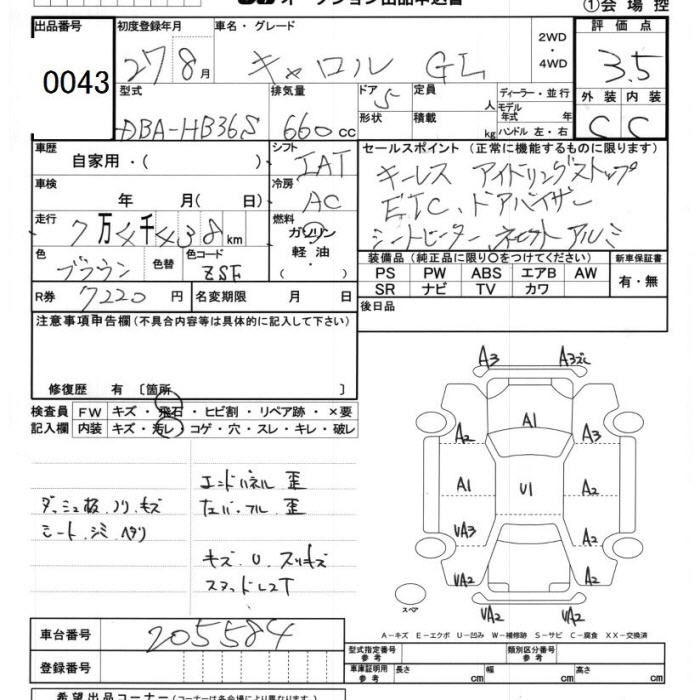 オークション出品申込書
①会場控
出品番号 初度登録年月 車名・グレード 2WD・4WD 評価点
0043 27 8月 キャロル GL 3.5
型式 排気量 ドア 5 定員 人 ディーラー・並行 外装 内装
形状 積載 kg モデル年式 年式 ハンドル 左・右
DBA-HB36S 660cc C C
車歴 自家用・( ) シフト IAT
セールスポイント (正常に機能するものに限ります)
キーレス アイドリングストップ
車検 年 月( 日) 冷房 AC
ETC、ドアバイザー
走行 7万 千 38km 燃料 ガソリン・軽油・
シートヒーター アルミ
色 ブラウン 色替 色コード ZSF
装備品(純正品に限り○をつけてください) 新車保証書
PS PW ABS エアB AW 有・無
SR ナビ TV カワ
R券 7220円 名変期限 月 日
後日品
注意事項申告欄(不具合内容等は具体的に記入して下さい)
修復歴 有 〔箇所 〕
検査員 FW キズ・飛石・ヒビ割・リペア跡・×要
記入欄 内装 キズ・汚レ・コゲ・穴・スレ・キレ・破レ
エンドパネル 歪
ダッシュ板、ノリ、キズ
シート、シミ
キズ U スリキズ
スタッドレスT
A3 A3
A1
A2 A3
A1 U1 A2
UA3 A2
UA2 A2
スペア
UA2 UA2
A-キズ E-エクボ U-凹み W-補修跡 S-サビ C-腐食 XX-交換済
車台番号 205584
登録番号
型式指定番号 参考 類別区分番号 参考
車庫証明用 参考 長さ cm 幅 cm 高さ cm
希望出品コーナー(コーナーは各会場によって異なります)